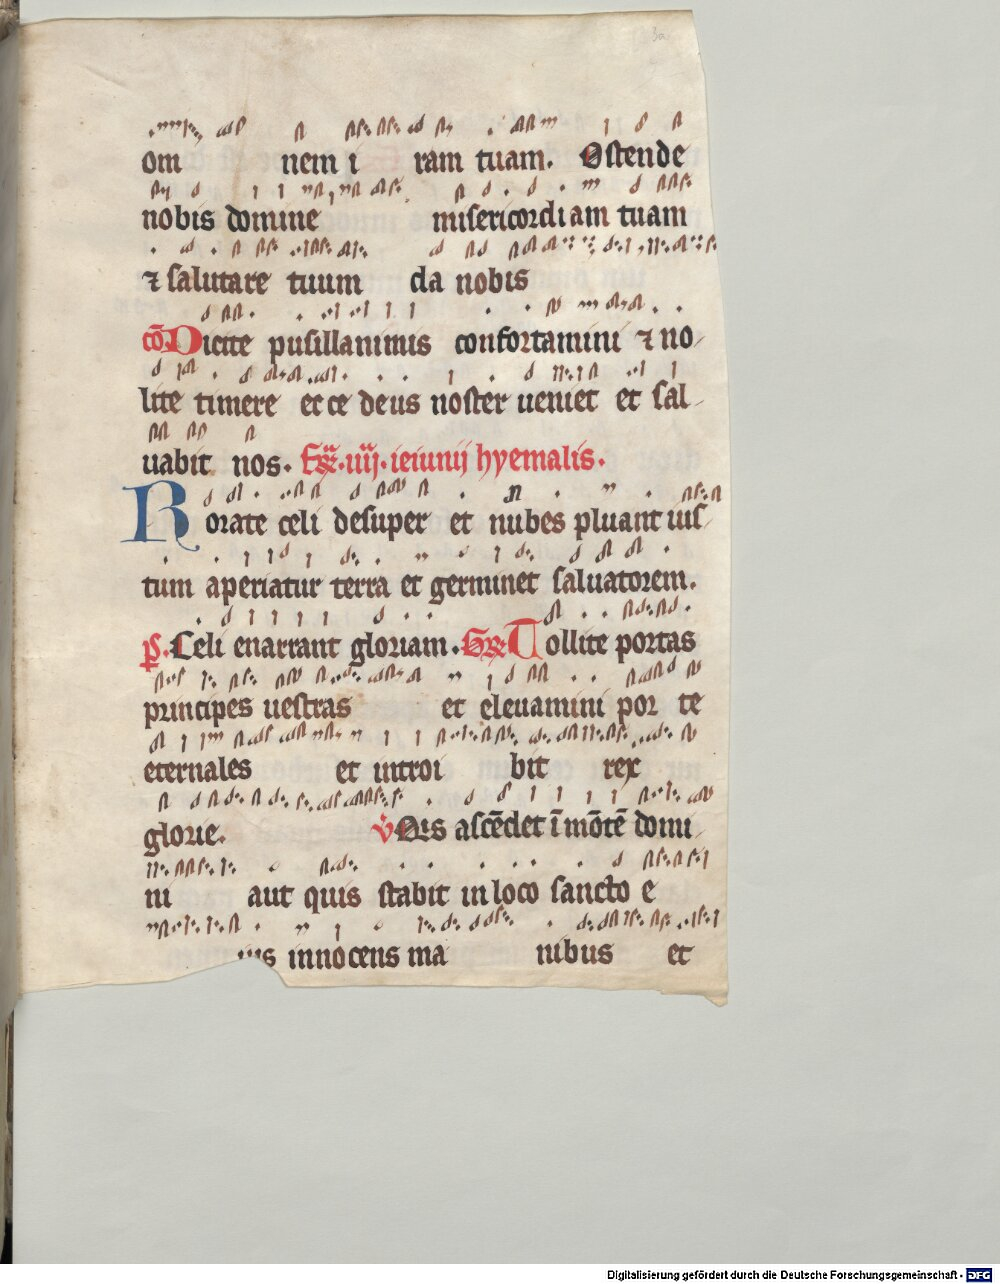 3a
om nem i ram tuam. Ostende
nobis domine misericordiam tuam
⁊ salutare tuum da nobis
cō. Dicite pusillanimis confortamini ⁊ no-
lite timere ecce deus noster ueniet et sal-
uabit nos. iiij. ieiunij hyemalis.
Rorate celi desuper et nubes pluant ius-
tum aperiatur terra et germinet saluatorem.
p̄s. Celi enarrant gloriam. Tollite portas
principes uestras et eleuamini por te
eternales et introi bit rex
glorie. v̄ Qis ascēdet ī mōtē domi-
ni aut quis stabit in loco sancto e
ius innocens ma nibus et
Digitalisierung gefördert durch die Deutsche Forschungsgemeinschaft - DFG